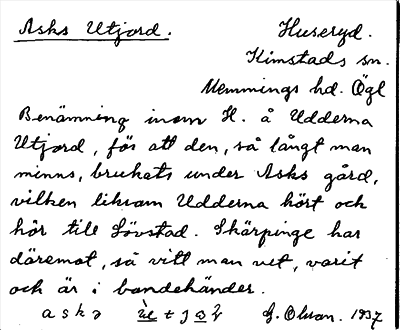 Asks Utjord. Huseryd.
Kimstads sn.
Memmings hd. Ögl
Benämning inom H. å Udderna
Utjord, för att den, så långt man
minns, brukats under Asks gård,
vilken liksom Udderna hört och
hör till Lövstad. Skärpinge har
däremot, så vitt man vet, varit
och är i bondehänder.
G. Olson. 1937